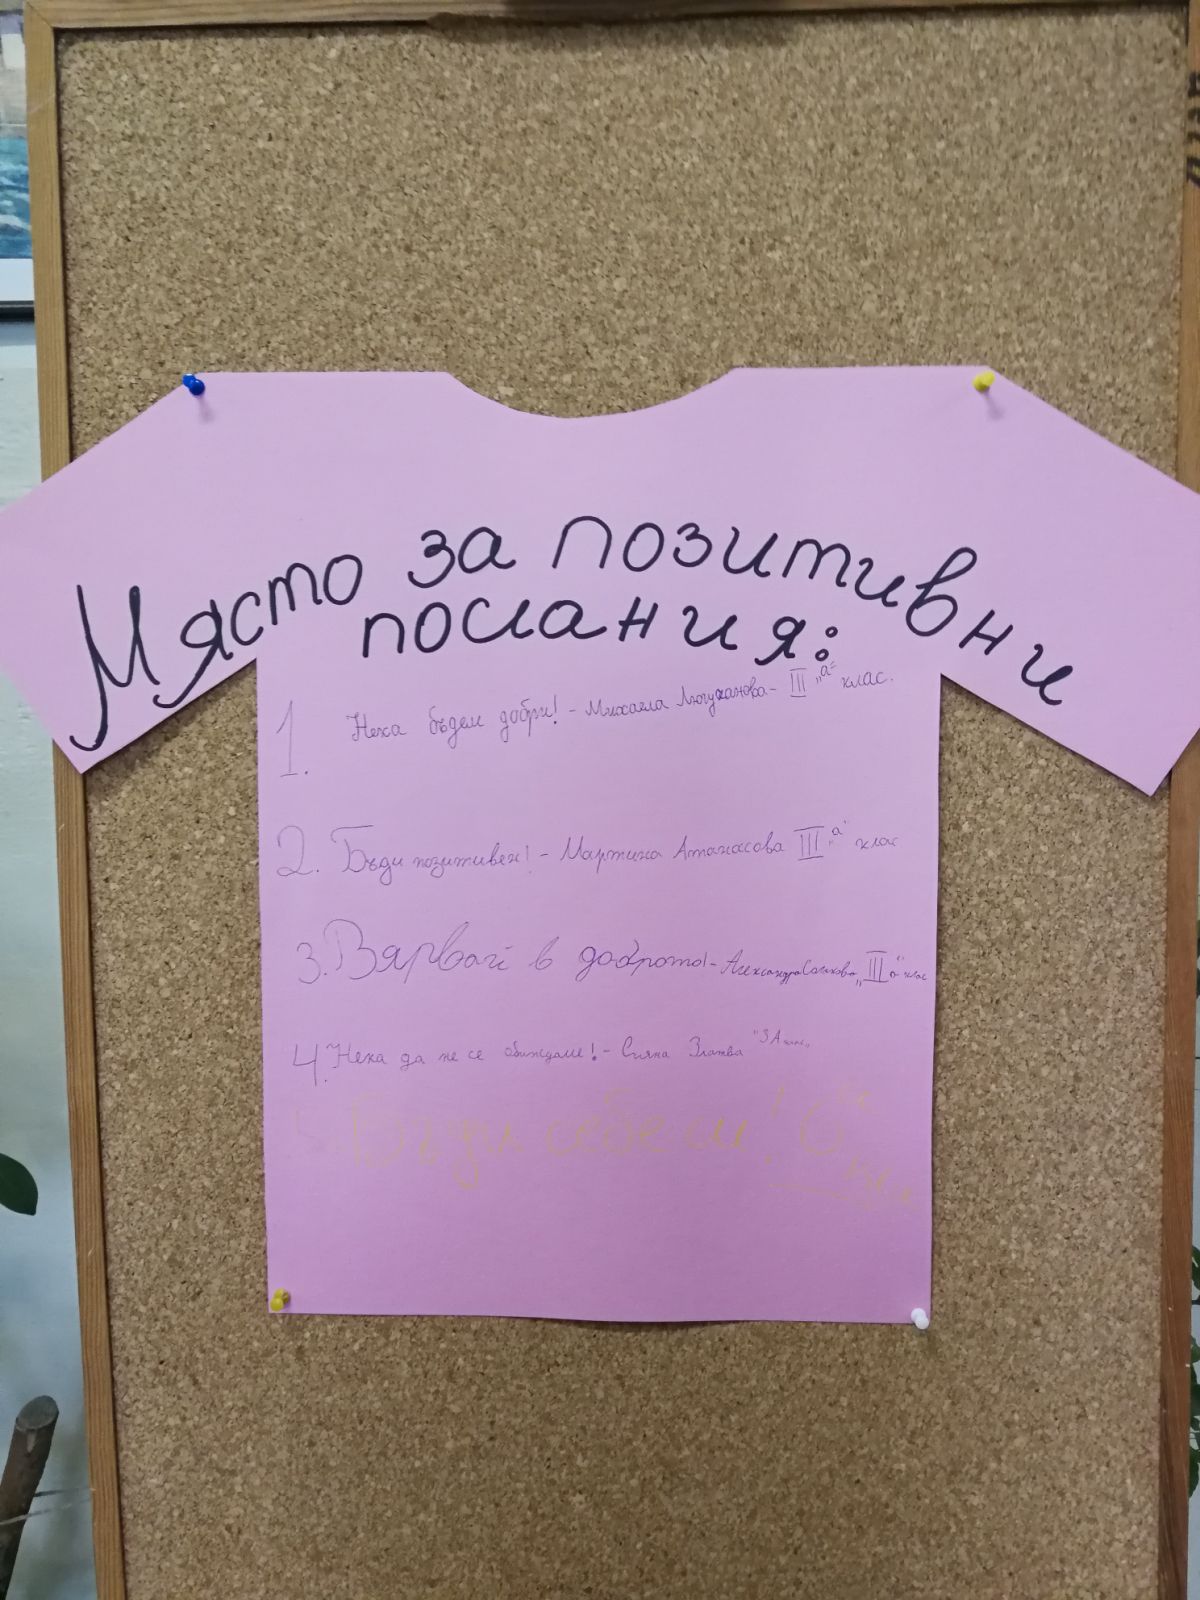 Място за позитивни
послания:
1. Нека бъдем добри! - Михаела - III "а" клас.
2. Бъди позитивен! - Мартина Атанасова III "а" клас
3. Вярвай в доброто! - Александра "III а" клас
4. Нека да не се обиждаме! - Сияна Златева "3А клас"
Бъди себе си!